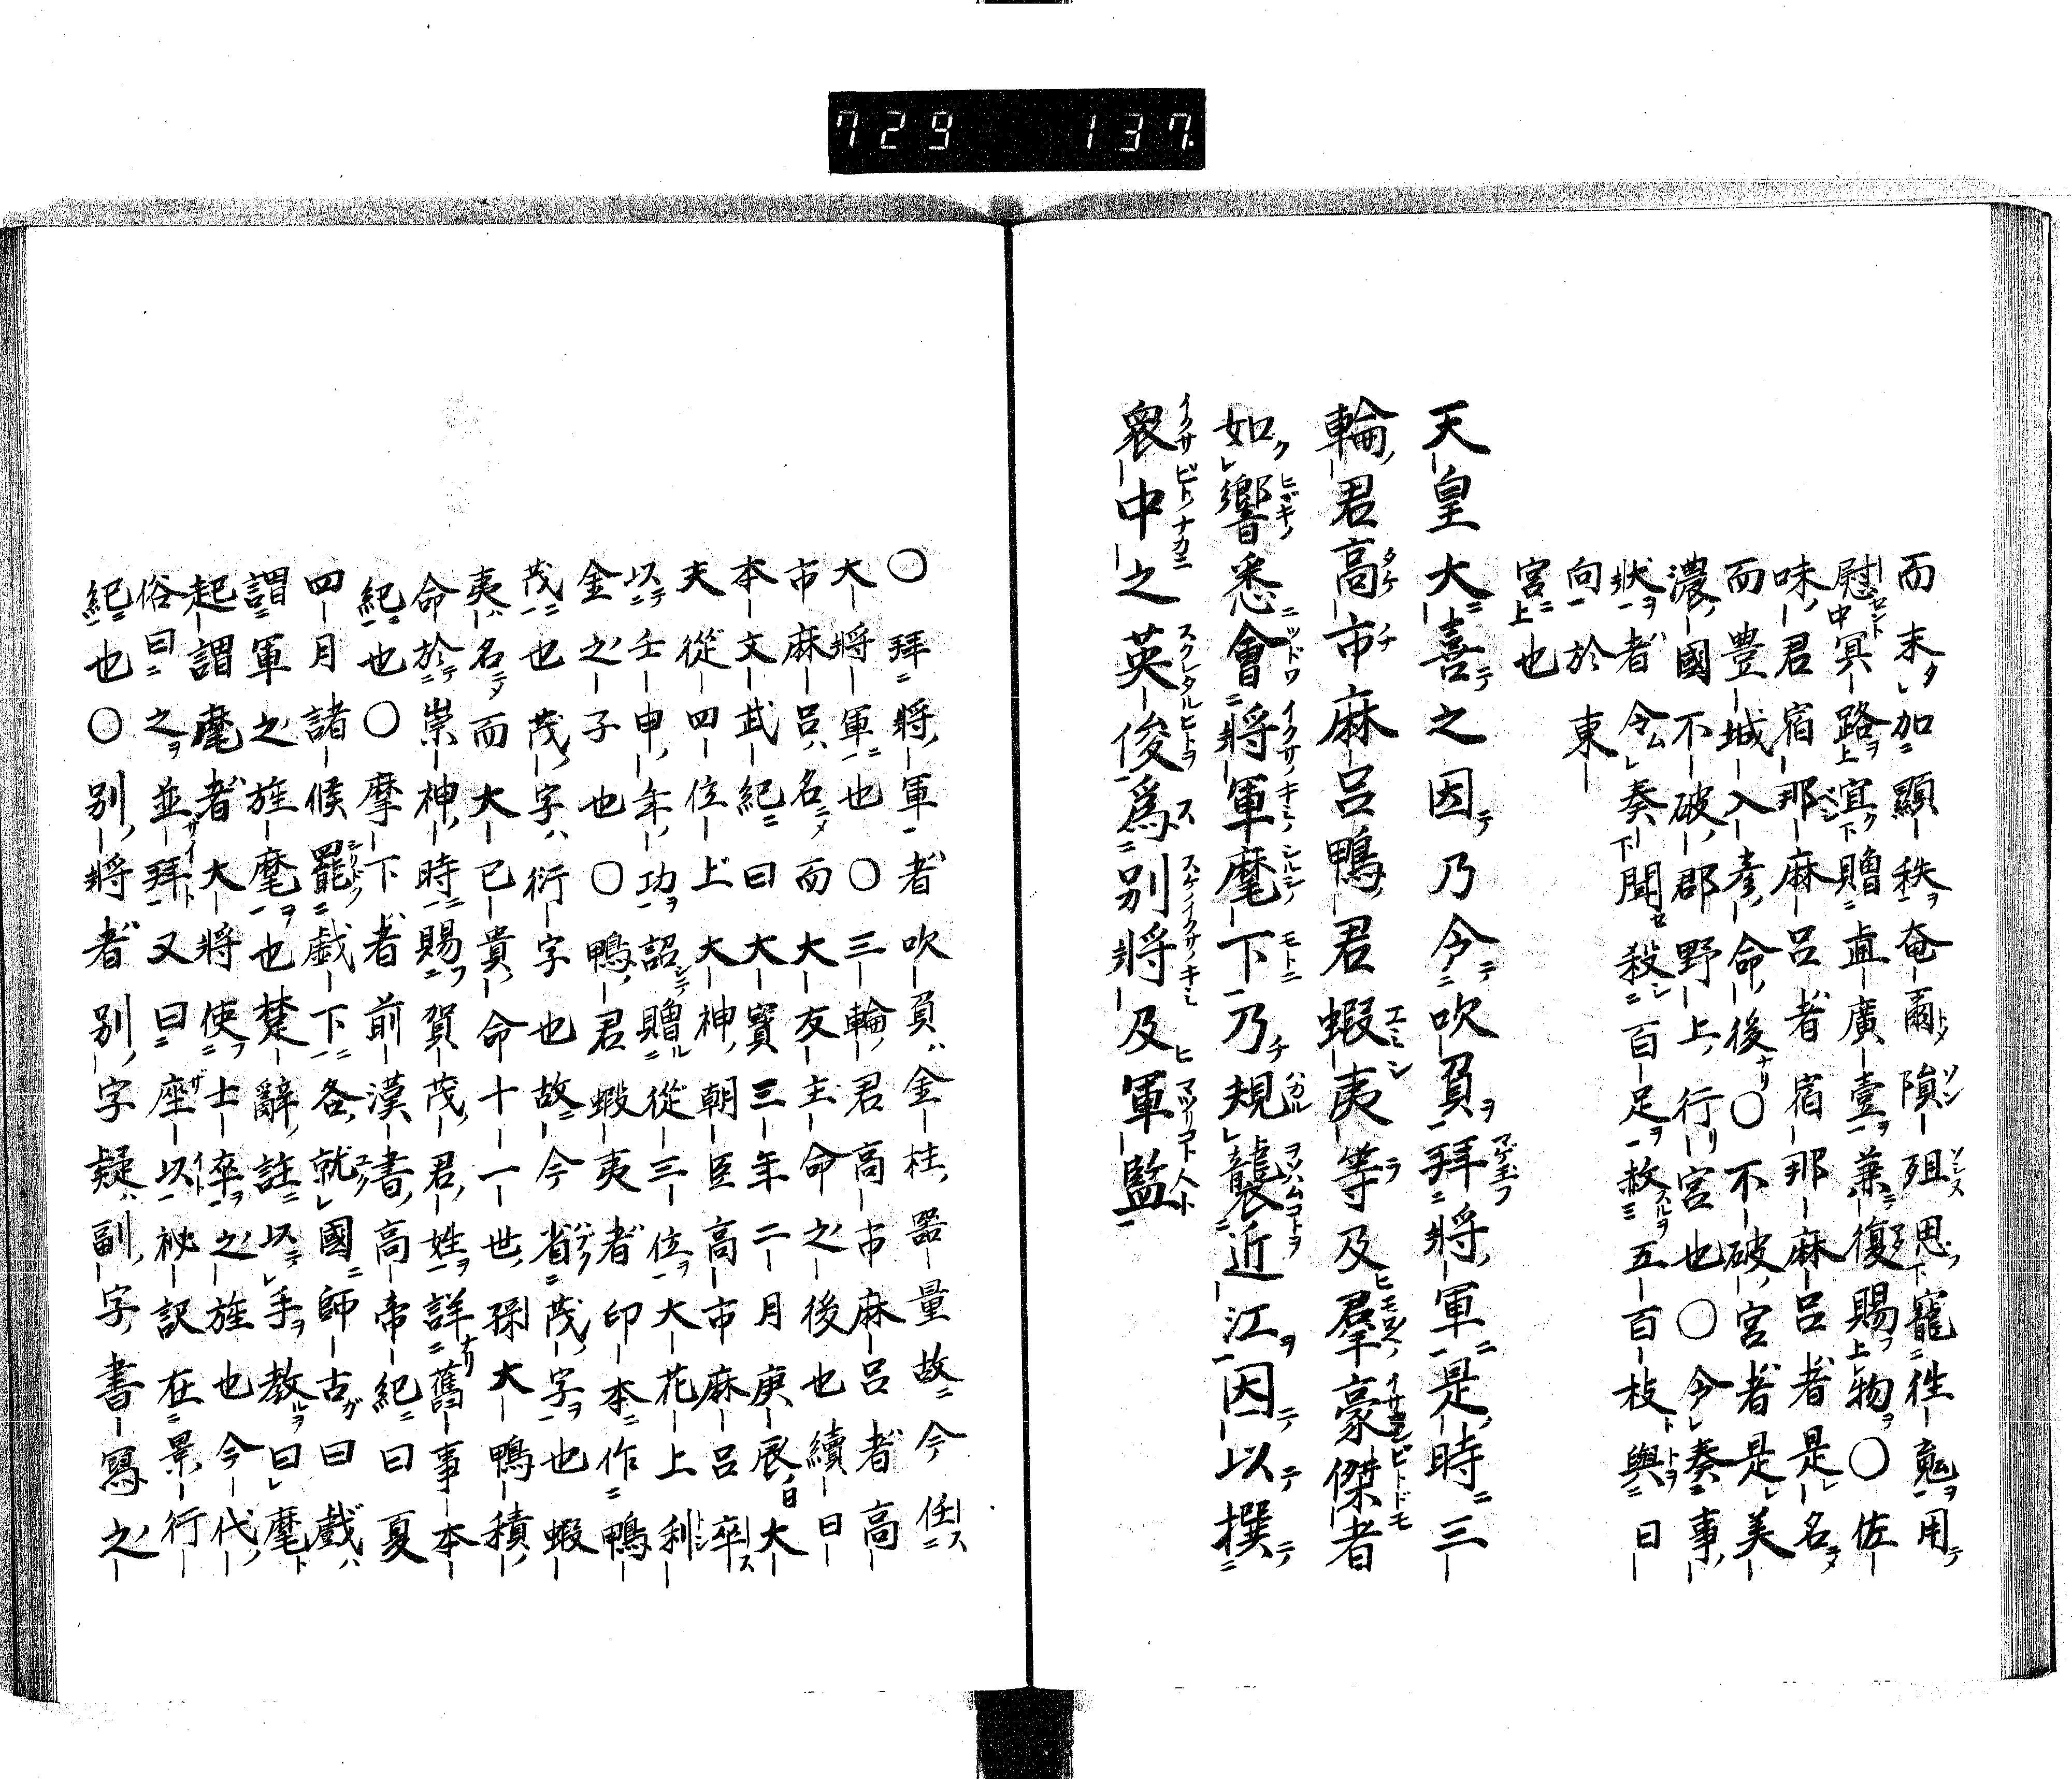 729 137
而未加顯秩奄爾隕殂思寵往䰟用
慰冥路宜贈直廣壹兼復賜物○佐
味君宿那麻呂者宿那麻呂者是名
而豊城入彦命後○不破宮者是美
濃國不破郡野上行宮也○令奏事
狀者令奏聞殺百足赦五百枝與日
向於東
宮也
天皇大喜之因乃令吹負拜將軍是時三
輪君高市麻呂鴨君蝦夷等及羣豪傑者
如響悉會將軍麾下乃規襲近江因以撰
衆中之英俊爲別將及軍監
○拜將軍者吹負金柱器量故今任
大將軍也○三輪君高市麻呂者高
市麻呂名而大友主命之後也續日
本文武紀曰大寳三年二月庚辰日大
夫從四位上大神朝臣高市麻呂卒
以壬申年功詔贈從三位大花上利
金之子也○鴨君蝦夷者印本作鴨
茂也茂字衍字也故今省茂字也蝦
夷名而大已貴命十一世孫大鴨積
命於崇神時賜賀茂君姓詳舊事本
紀也○摩下者前漢書高帝紀曰夏
四月諸候罷戯下各就國師古曰戲
謂軍之旌麾也楚辭註以手教曰麾
起謂麾者大將使士卒之旌也今代
俗曰之並拜又曰座以袐訳在景行
紀也○別將者別字疑副字書寫之